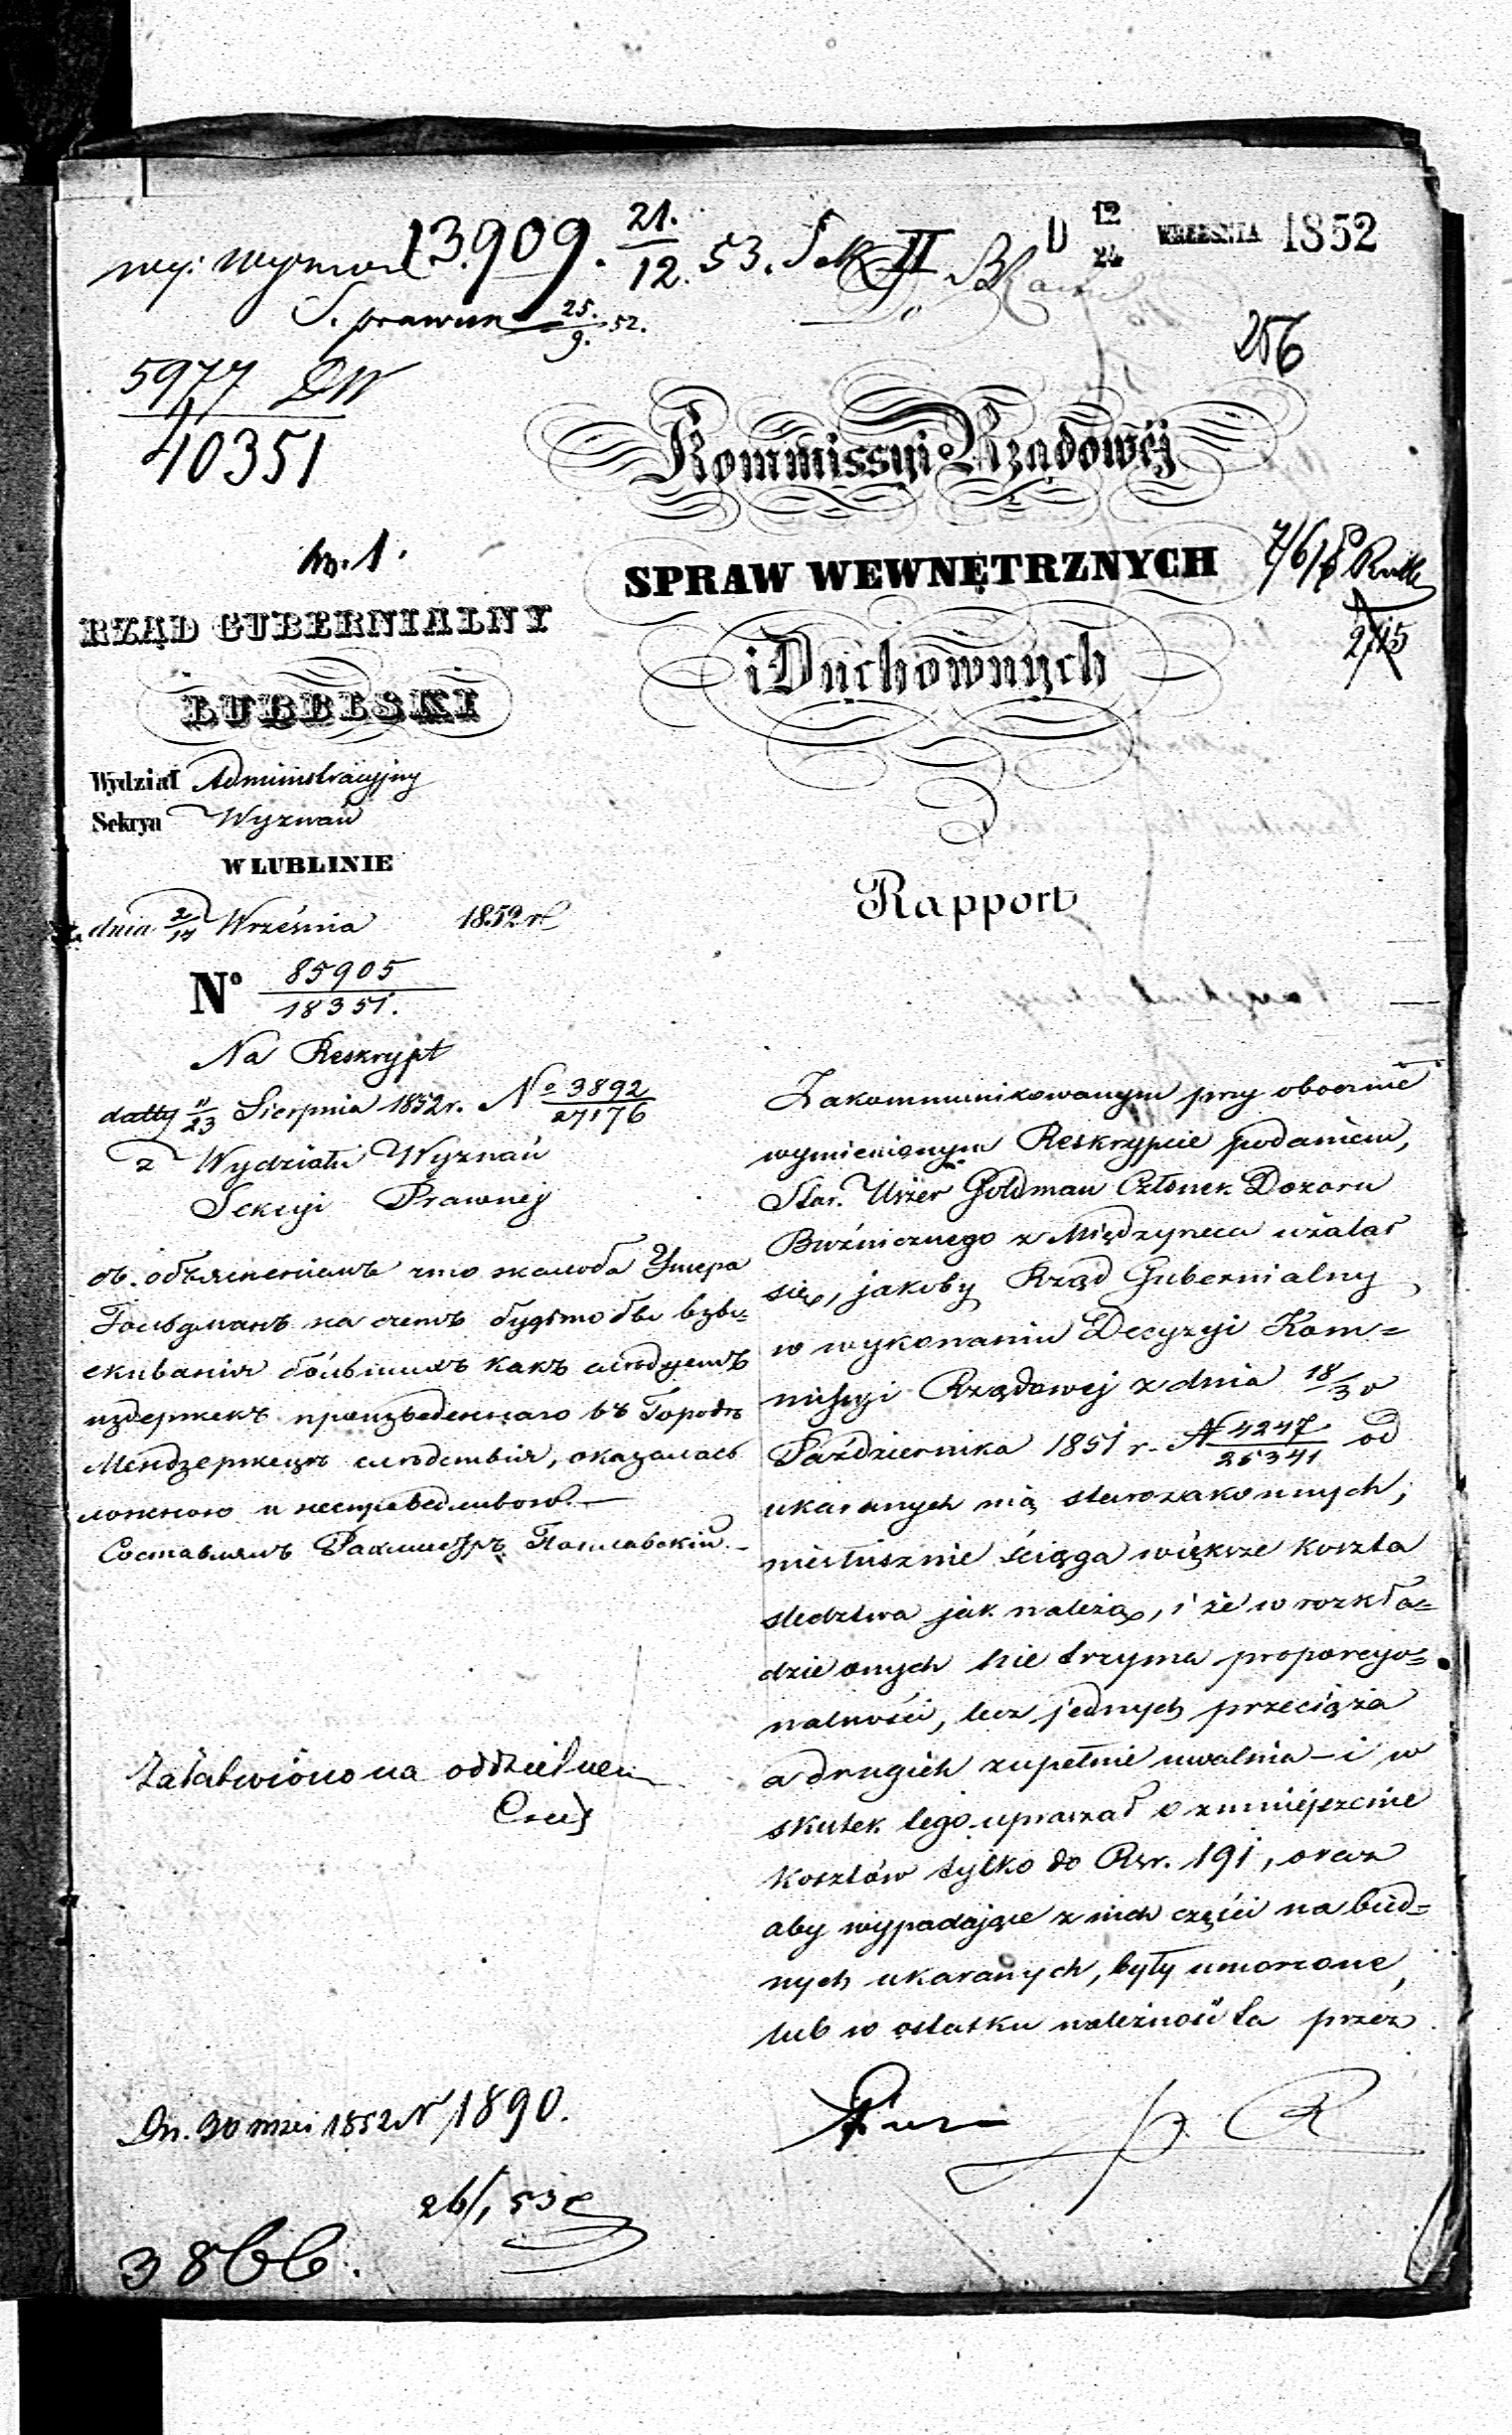 13909. 21./12. 53. Sek II
D 12/24 WRZEŚNIA 1852
S. prawna 25./9. 52.
256
5977 DW
40351
Do
Kommissyi Rządowéj
w. 1.
SPRAW WEWNĘTRZNYCH
i Duchownych
RZĄD GUBERNIALNY
LUBELSKI
Wydział Administracyjny
Sekcya Wyznań
W LUBLINIE
dnia Września 1852 r.
Rapport
Nº 85905
18351.
Na Reskrypt
datty 11/23 Sierpnia 1852 r. Nº 3892/27176
z Wydziału Wyznań
Sekcyi Prawnéj
съ объясненіемъ что жалоба Ушера
Гольдманъ на счетъ будтобы взы=
скиванія большихъ какъ слѣдуетъ
издержекъ произведеннаго въ Городѣ
Мендзержецѣ слѣдствія, оказалась
ложною и несправедливою.—
Составлялъ
Zakommunikowanym przy obocznie
wymienionym Reskrypcie podaniem,
Star. Uszer Goldman Członek Dozoru
Bużnicznego z Międzyrzeca użalał
się, jakoby Rząd Gubernialny
w wykonaniu Decyzyi Kom=
missyi Rządowej z dnia 18/30
Października 1851 r. N 4247/25341 od
ukaranych nią starozakonnych,
niesłusznie ściąga większe koszta
śledztwa jak należą, i że w rozkła=
dzie onych nie trzyma proporcyo=
nalności, lecz jednych przeciąża
a drugich zupełnie uwalnia – i w
skutek tego upraszał o zmniejszenie
kosztów tylko do Rsr. 191, oraz
aby wypadające z nich części na bied=
nych ukaranych, były umorzone,
lub w ostatku należność ta przez
Załatwiono na oddzielnem
Dn. 30 1852 N 1890.
26/1 53
3866.